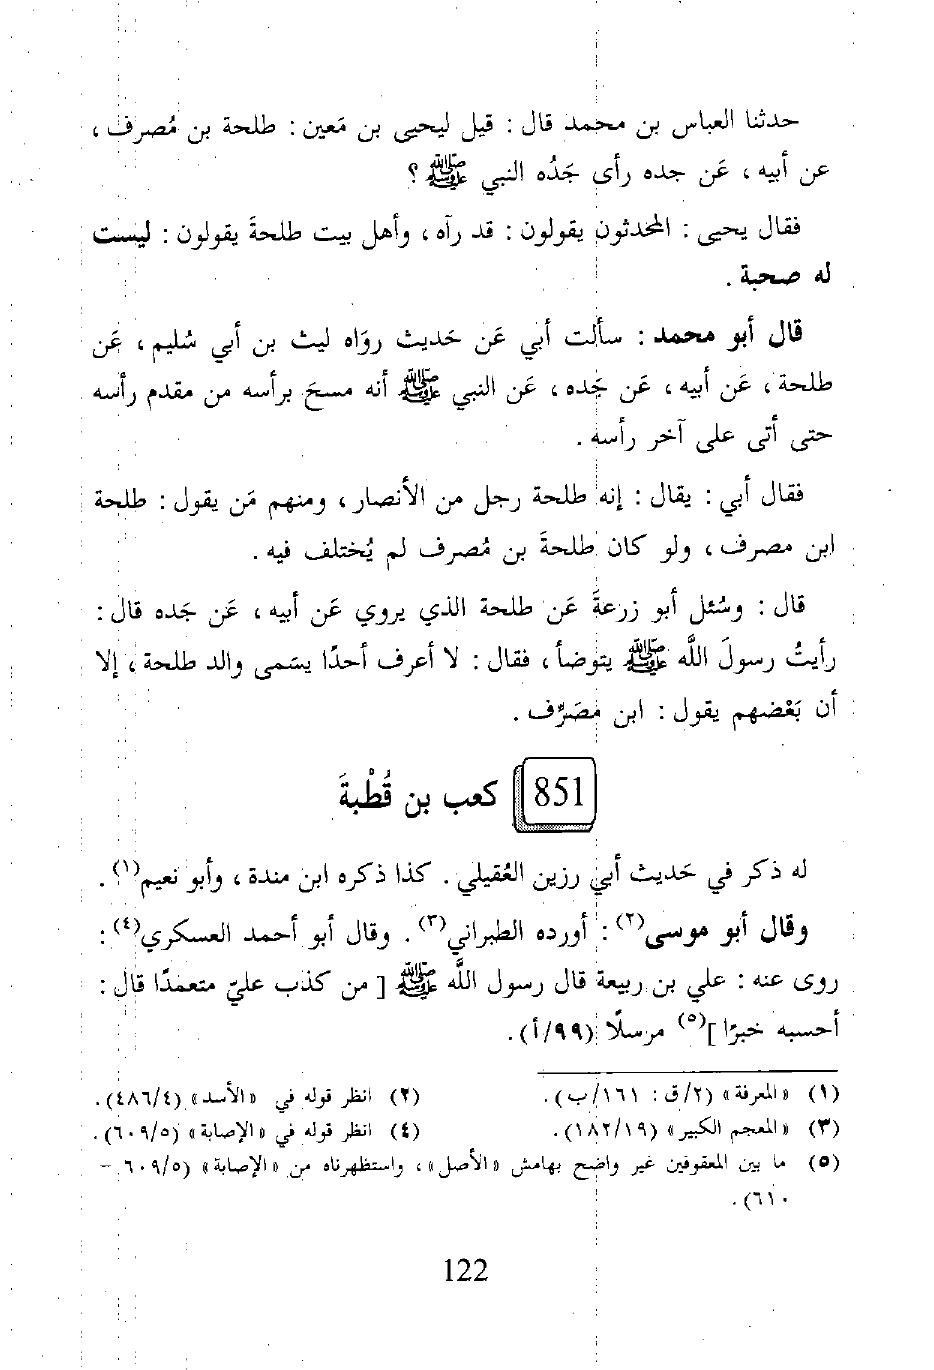 حدثنا العباس بن محمد قال : قيل ليحيى بن مَعين : طلحة بن مُصرف ،
عن أبيه ، عَن جده رأى جَدُه النبي ﷺ ؟
فقال يحيى : المحدثون يقولون : قد رآه ، وأهل بيت طلحةَ يقولون : ليست
له صحبة .
قال أبو محمد : سألت أبي عَن حَديث روَاه ليث بن أبي سُليم ، عَن
طلحة ، عَن أبيه ، عَن جَده ، عَن النبي ﷺ أنه مسحَ برأسه من مقدم رأسه
حتى أتى على آخر رأسه .
فقال أبي : يقال : إنه طلحة رجل من الأنصار ، ومنهم مَن يقول : طلحة
ابن مصرف ، ولو كان طلحةَ بن مُصرف لم يُختلف فيه .
قال : وسُئل أبو زرعةَ عَن طلحة الذي يروي عَن أبيه ، عَن جَده قال :
رأيتُ رسولَ اللَّه ﷺ يتوضأ ، فقال : لا أعرف أحدًا يسَمى والد طلحة ، إلا
أن بَعْضهم يقول : ابن مصَرِّف .
851 كعب بن قُطْبةَ
له ذكر في حَديث أبي رزين العُقيلي . كذا ذكره ابن مندة ، وأبو نعيم(١) .
وقال أبو موسى(٢) : أورده الطبراني(٣) . وقال أبو أحمد العسكري(٤) :
روى عنه : علي بن ربيعة قال رسول اللَّه ﷺ [ من كذب عليّ متعمدًا قال :
أحسبه خبرًا ](٥) مرسلًا (٩٩/أ) .
(١) «المعرفة» (٢/ق : ١٦١/ب) . (٢) انظر قوله في «الأسد» (٤٨٦/٤) .
(٣) «المعجم الكبير» (١٨٢/١٩) . (٤) انظر قوله في «الإصابة» (٦٠٩/٥) .
(٥) ما بين المعقوفين غير واضح بهامش «الأصل» ، واستظهرناه من «الإصابة» (٦٠٩/٥ -
٦١٠) .
122